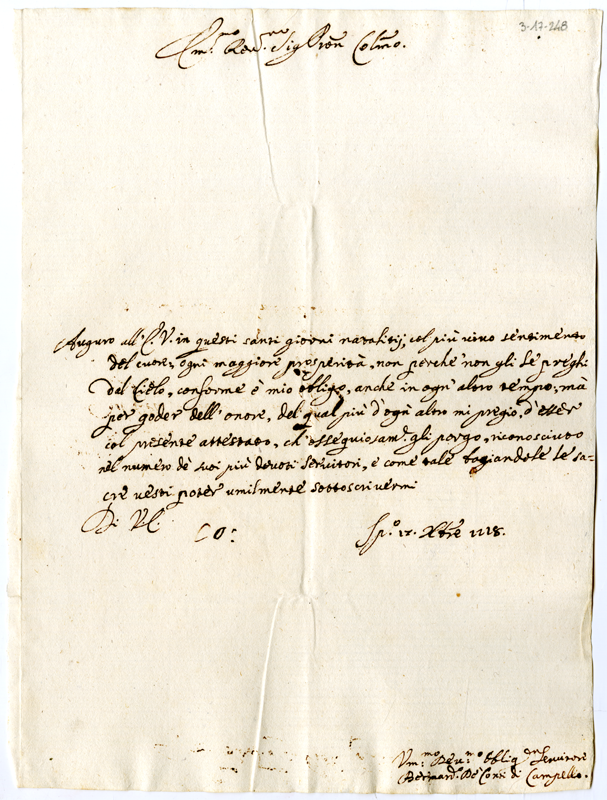 3-17-248
Em.mo Rev.mo Sig.r Pron Colmo.
Auguro all'E.V. in questi santi giorni natalitij, col più vivo sentimento
del cuore, ogni maggiore prosperità, non perche non gli le preghi
dal Cielo, conforme è mio obligo, anche in ogn'altro tempo; ma
per goder dell'onore, del qual più d'ogn'altro mi pregio, d'esser
col presente attestato, ch'essequiosam.te gli porgo, riconosciuto
nel numero dè suoi più devoti servitori, e come tale bagiandole le sa-
cre vesti poter umilmente sottoscrivermi
Di V.E.
Sp.o 12. Xbre 1718.
Um.mo Dev.mo obblig. Servitore
Bernard.o De Conti di Campello.